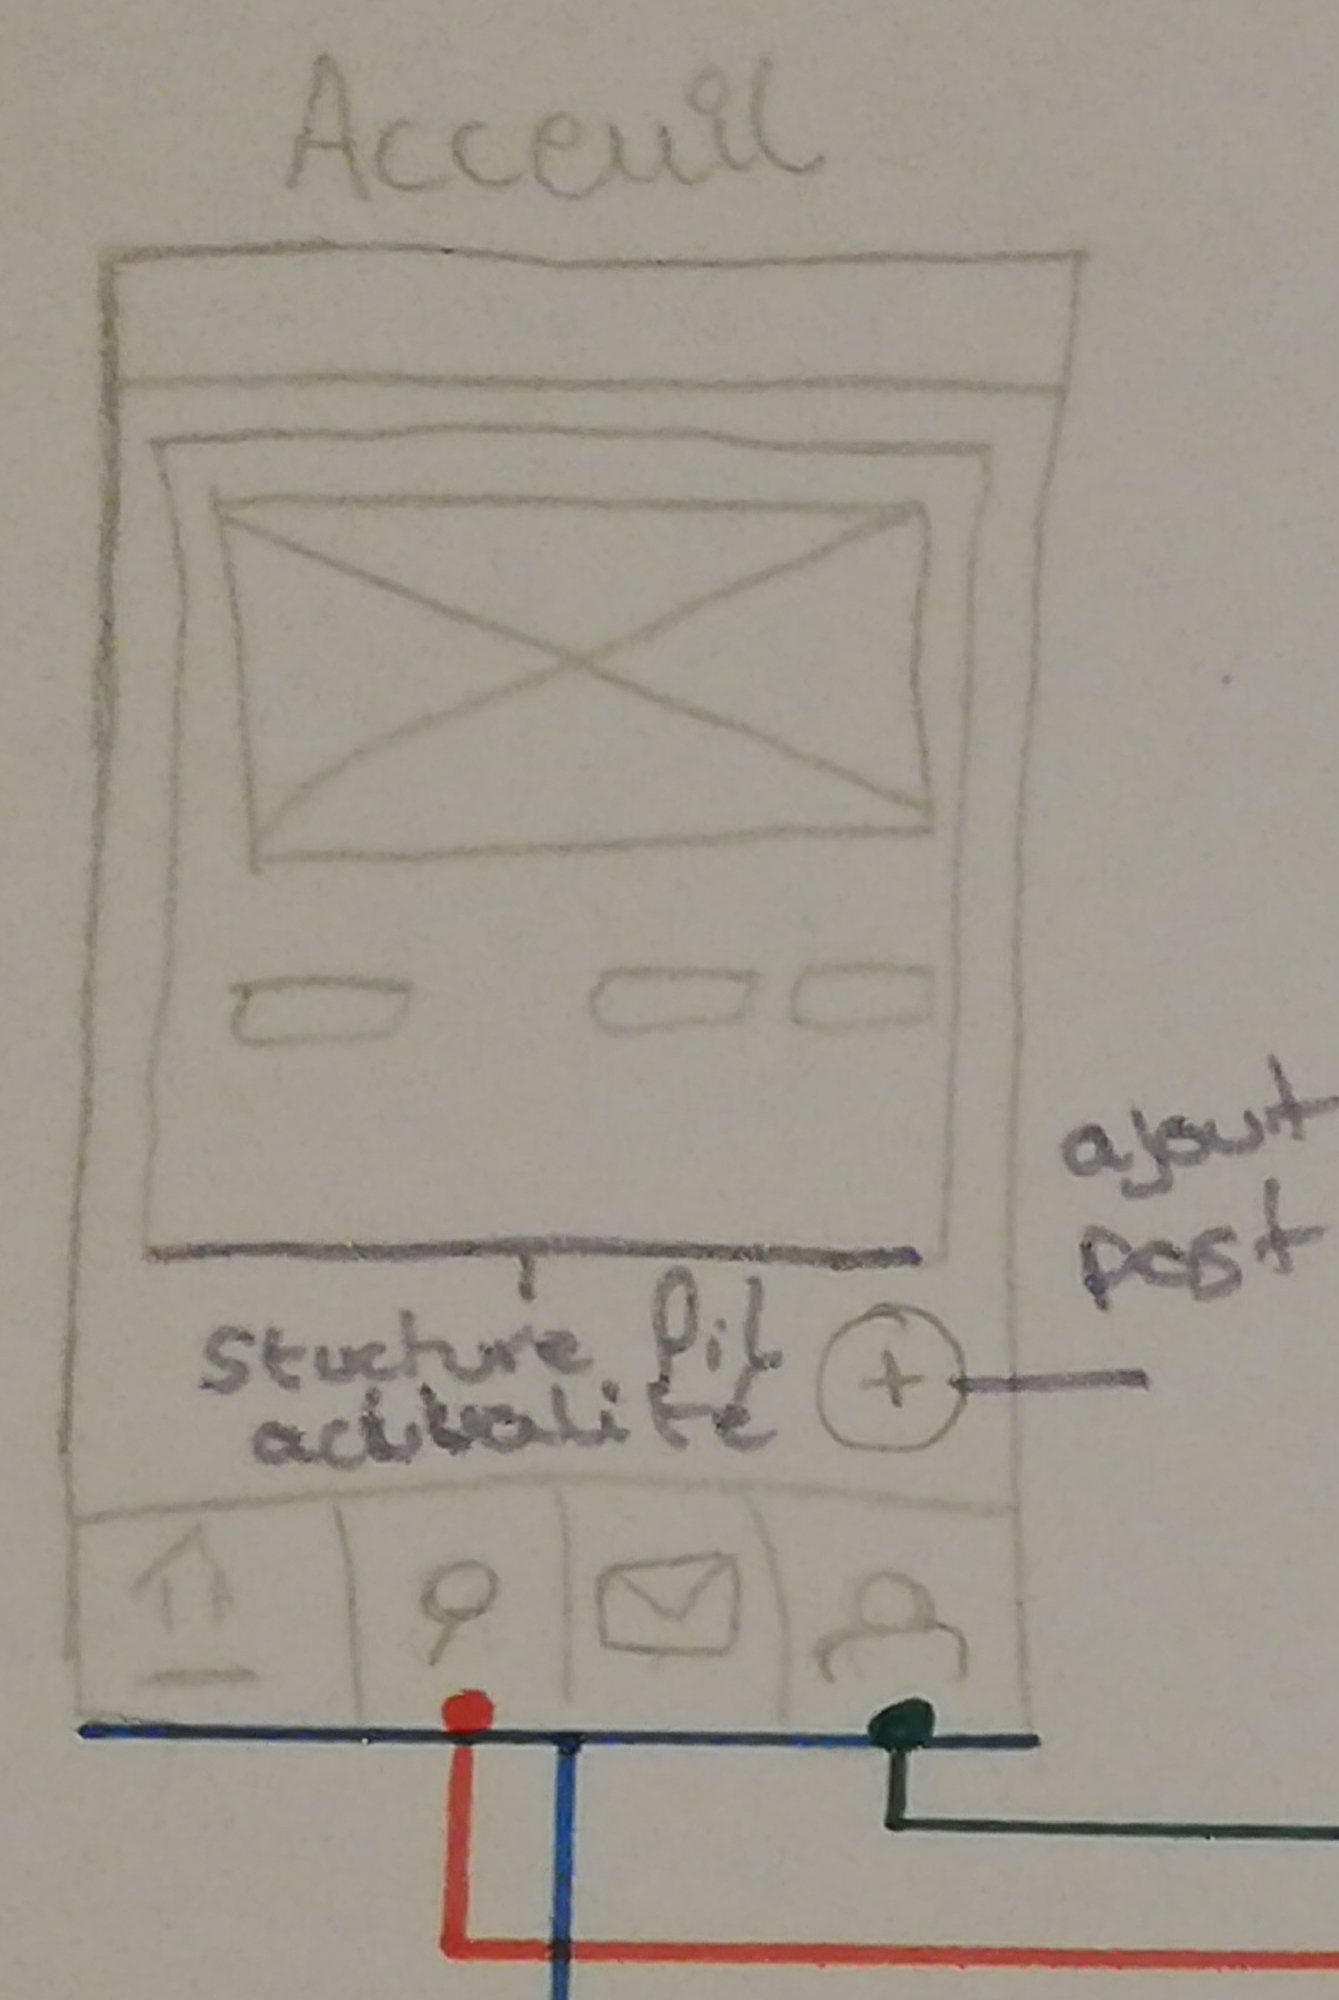 Acceuil
ajout
post
Structure Pil
actualité
+